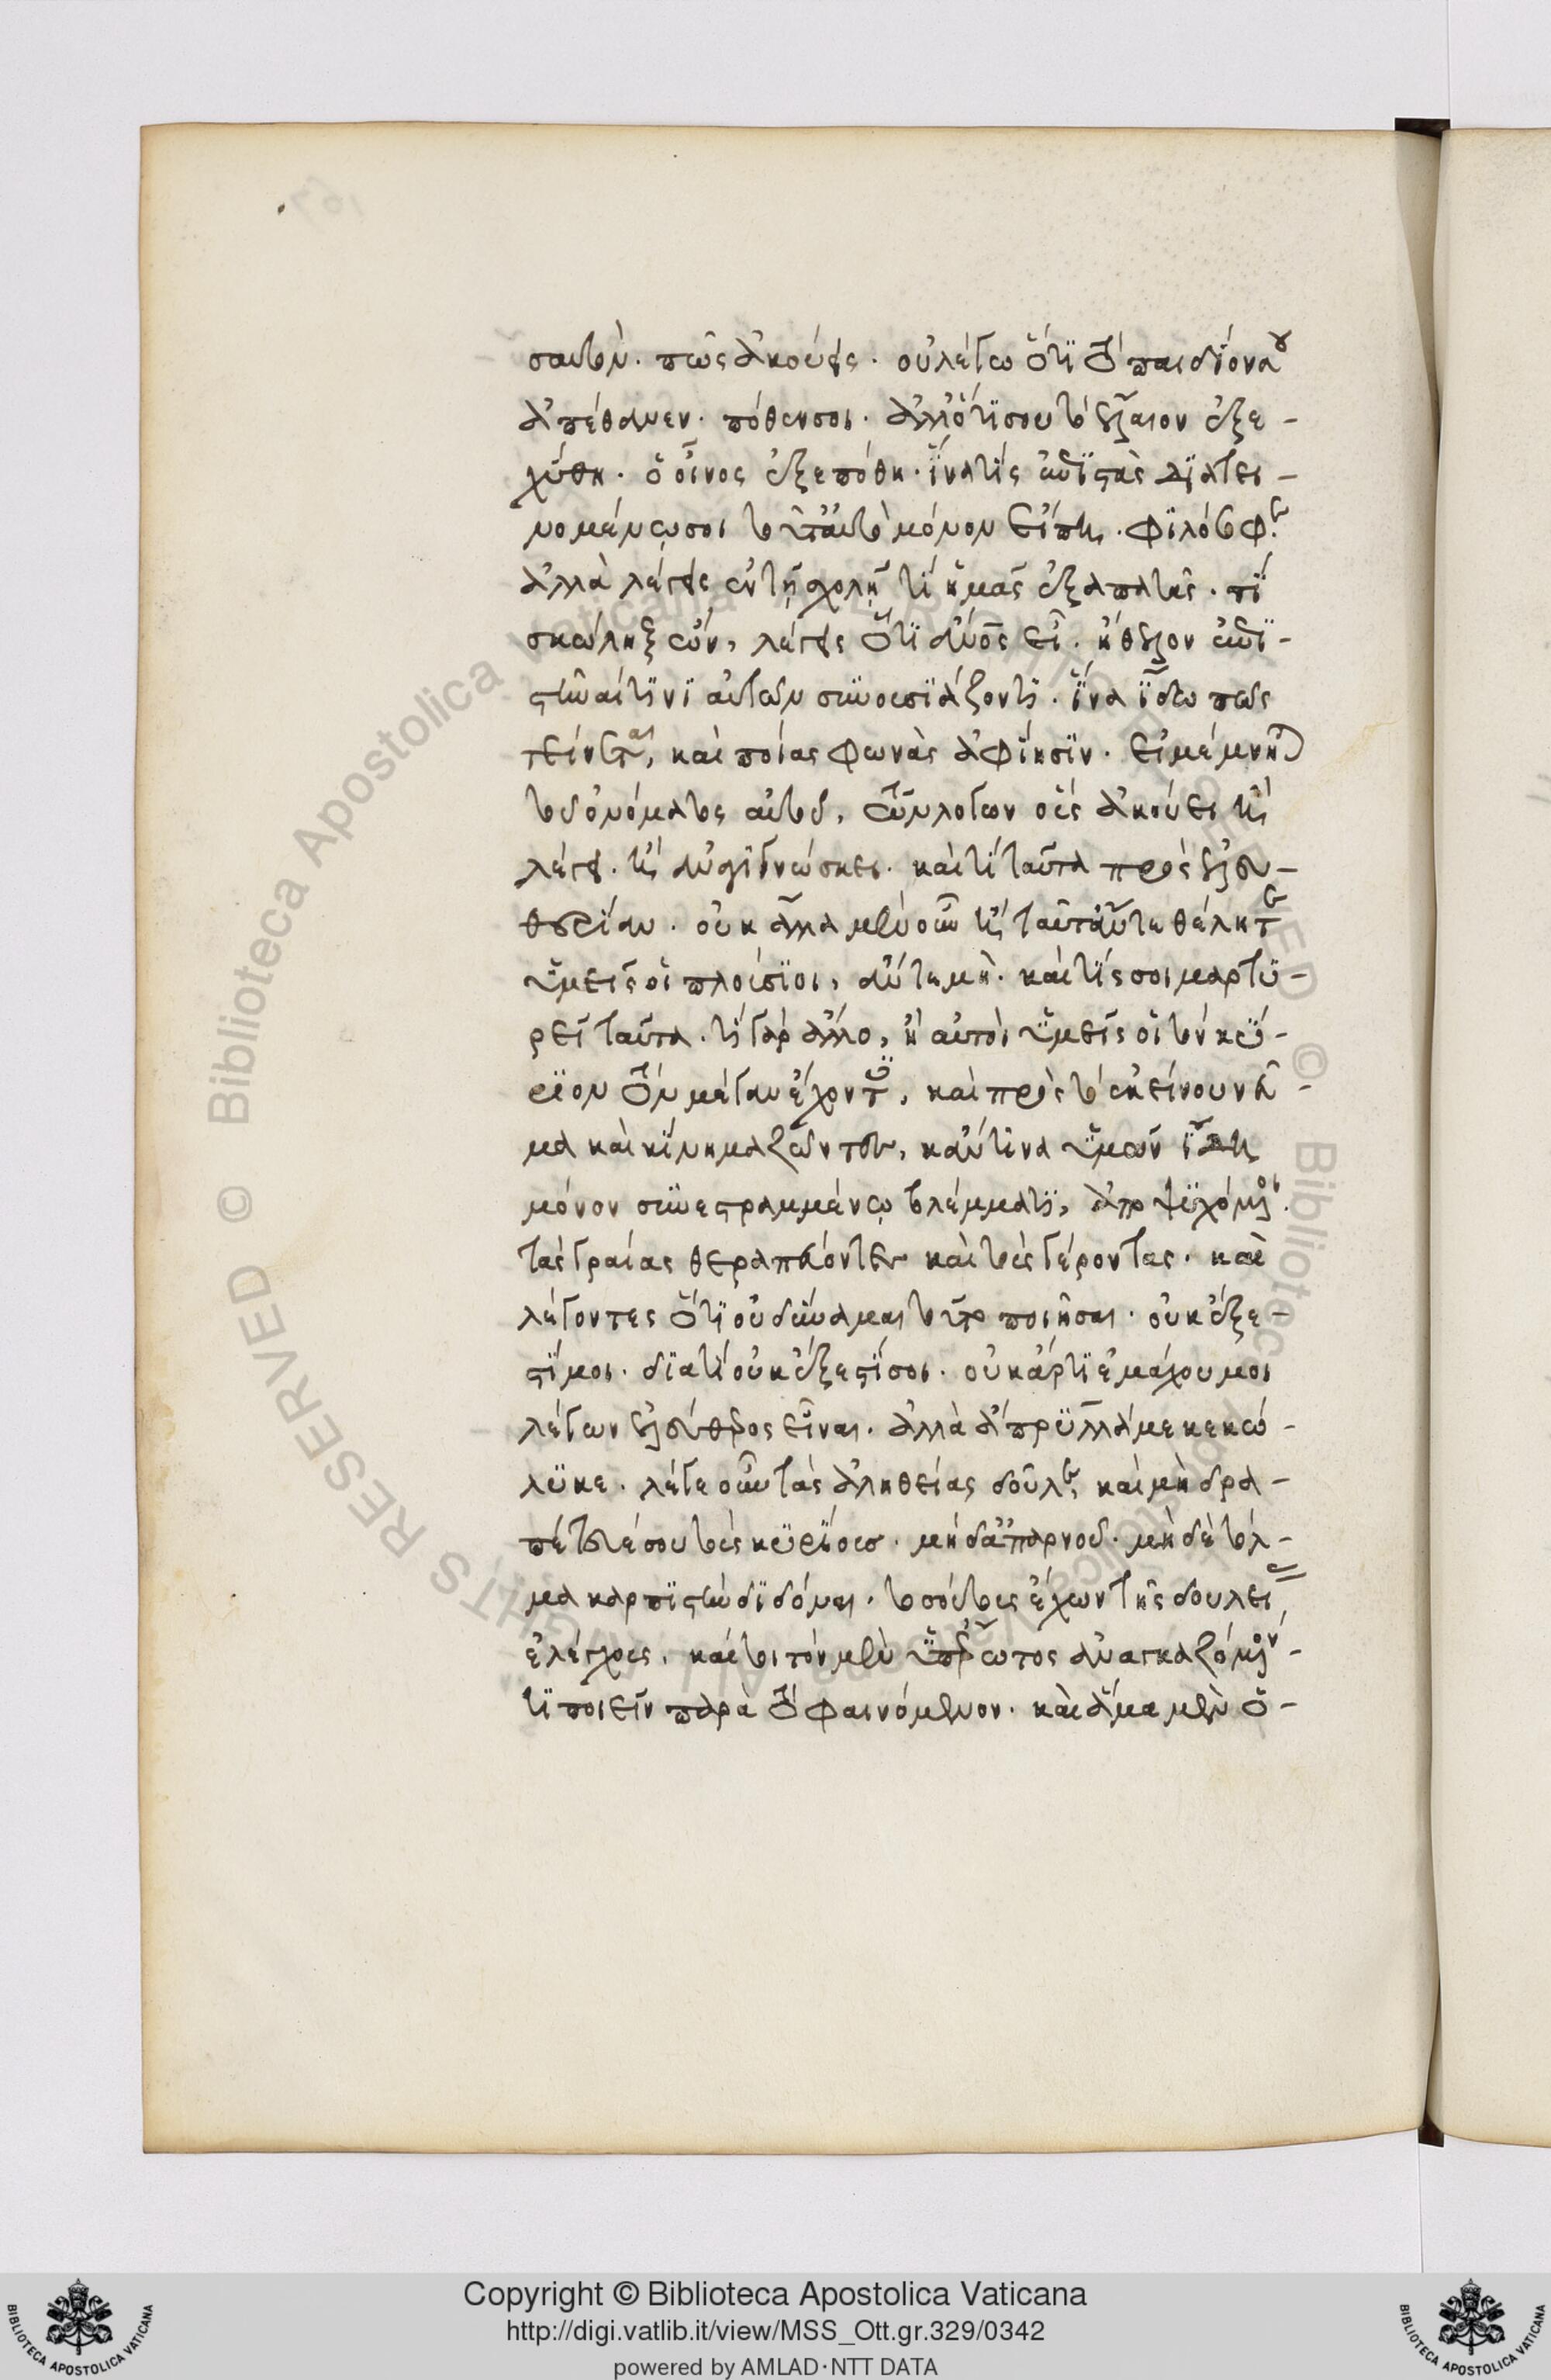 σαυτὸν. πῶς ἀκούεις. οὐ λέγω ὅτι τὸ παιδίον σου
ἀπέθανεν. πόθεν σοι. ἀλλ' ὅτι σου τὸ ἔλαιον ἐξε-
χύθη. ὁ οἶνος ἐξεπόθη. ἵνα τίς ἐπιστὰς διατει-
νομένῳ σοι τοῦτ' αὐτὸ μόνον εἴπῃ. φιλόσοφε
ἀλλὰ λέγεις ἐν τῇ σχολῇ τί ἡμᾶς ἐξαπατᾷς. τί
σκώληξ ὢν, λέγεις ὅτι ἄνος εἶ. ἤθελον ἐπι-
στῆναί τινι αὐτῶν συνουσιάζοντι. ἵνα ἴδω πῶς
τείνεται, καὶ ποίας φωνὰς ἀφίησιν. εἰ μέμνηται
τοῦ ὀνόματος αὐτοῦ, τῶν λόγων οὓς ἀκούει ἢ
λέγει. ἢ ἀναγιγνώσκει. καὶ τί ταῦτα πρὸς ἐλευ-
θερίαν. οὐκ ἄλλα μὲν οὖν ἢ ταῦτ' ἄν τε θέλητε
ὑμεῖς οἱ πλούσιοι, ἄν τε μὴ. καὶ τίς σοι μαρτυ-
ρεῖ ταῦτα. τί γὰρ ἄλλο, ἢ αὐτοὶ ὑμεῖς οἱ τὸν κύ-
ριον τὸν μέγαν ἔχοντες, καὶ πρὸς τὸ ἐκείνου νεῦ-
μα καὶ κίνημα ζῶντες, κἄν τινα ὑμῶν ἴδῃ
μόνον συνεστραμμένῳ βλέμματι, ἀποψυχόμενοι.
τὰς γραίας θεραπεύοντες καὶ τοὺς γέροντας. καὶ
λέγοντες ὅτι οὐ δύναμαι τοῦτο ποιῆσαι. οὐκ ἔξε-
στί μοι. διατί οὐκ ἔξεστί σοι. οὐκ ἄρτι ἐμάχου μοι
λέγων ἐλεύθερος εἶναι. ἀλλὰ ἄπρυλλά με κεκώ-
λυκε. λέγε οὖν τὰς ἀληθείας δοῦλε, καὶ μὴ δρα-
πέτευέ σου τοὺς κυρίους. μηδ' ἀπαρνοῦ. μηδὲ τόλ-
μα καρπιστὴν διδόναι. τοσούτους ἔχων τῆς δουλείας
ἐλέγχους. καίτοι τὸν μὲν ὑπ' ἔρωτος ἀναγκαζόμενόν
τι ποιεῖν παρὰ τὸ φαινόμενον. καὶ ἅμα μὲν ὁ-
Copyright © Biblioteca Apostolica Vaticana
http://digi.vatlib.it/view/MSS_Ott.gr.329/0342
powered by AMLAD·NTT DATA